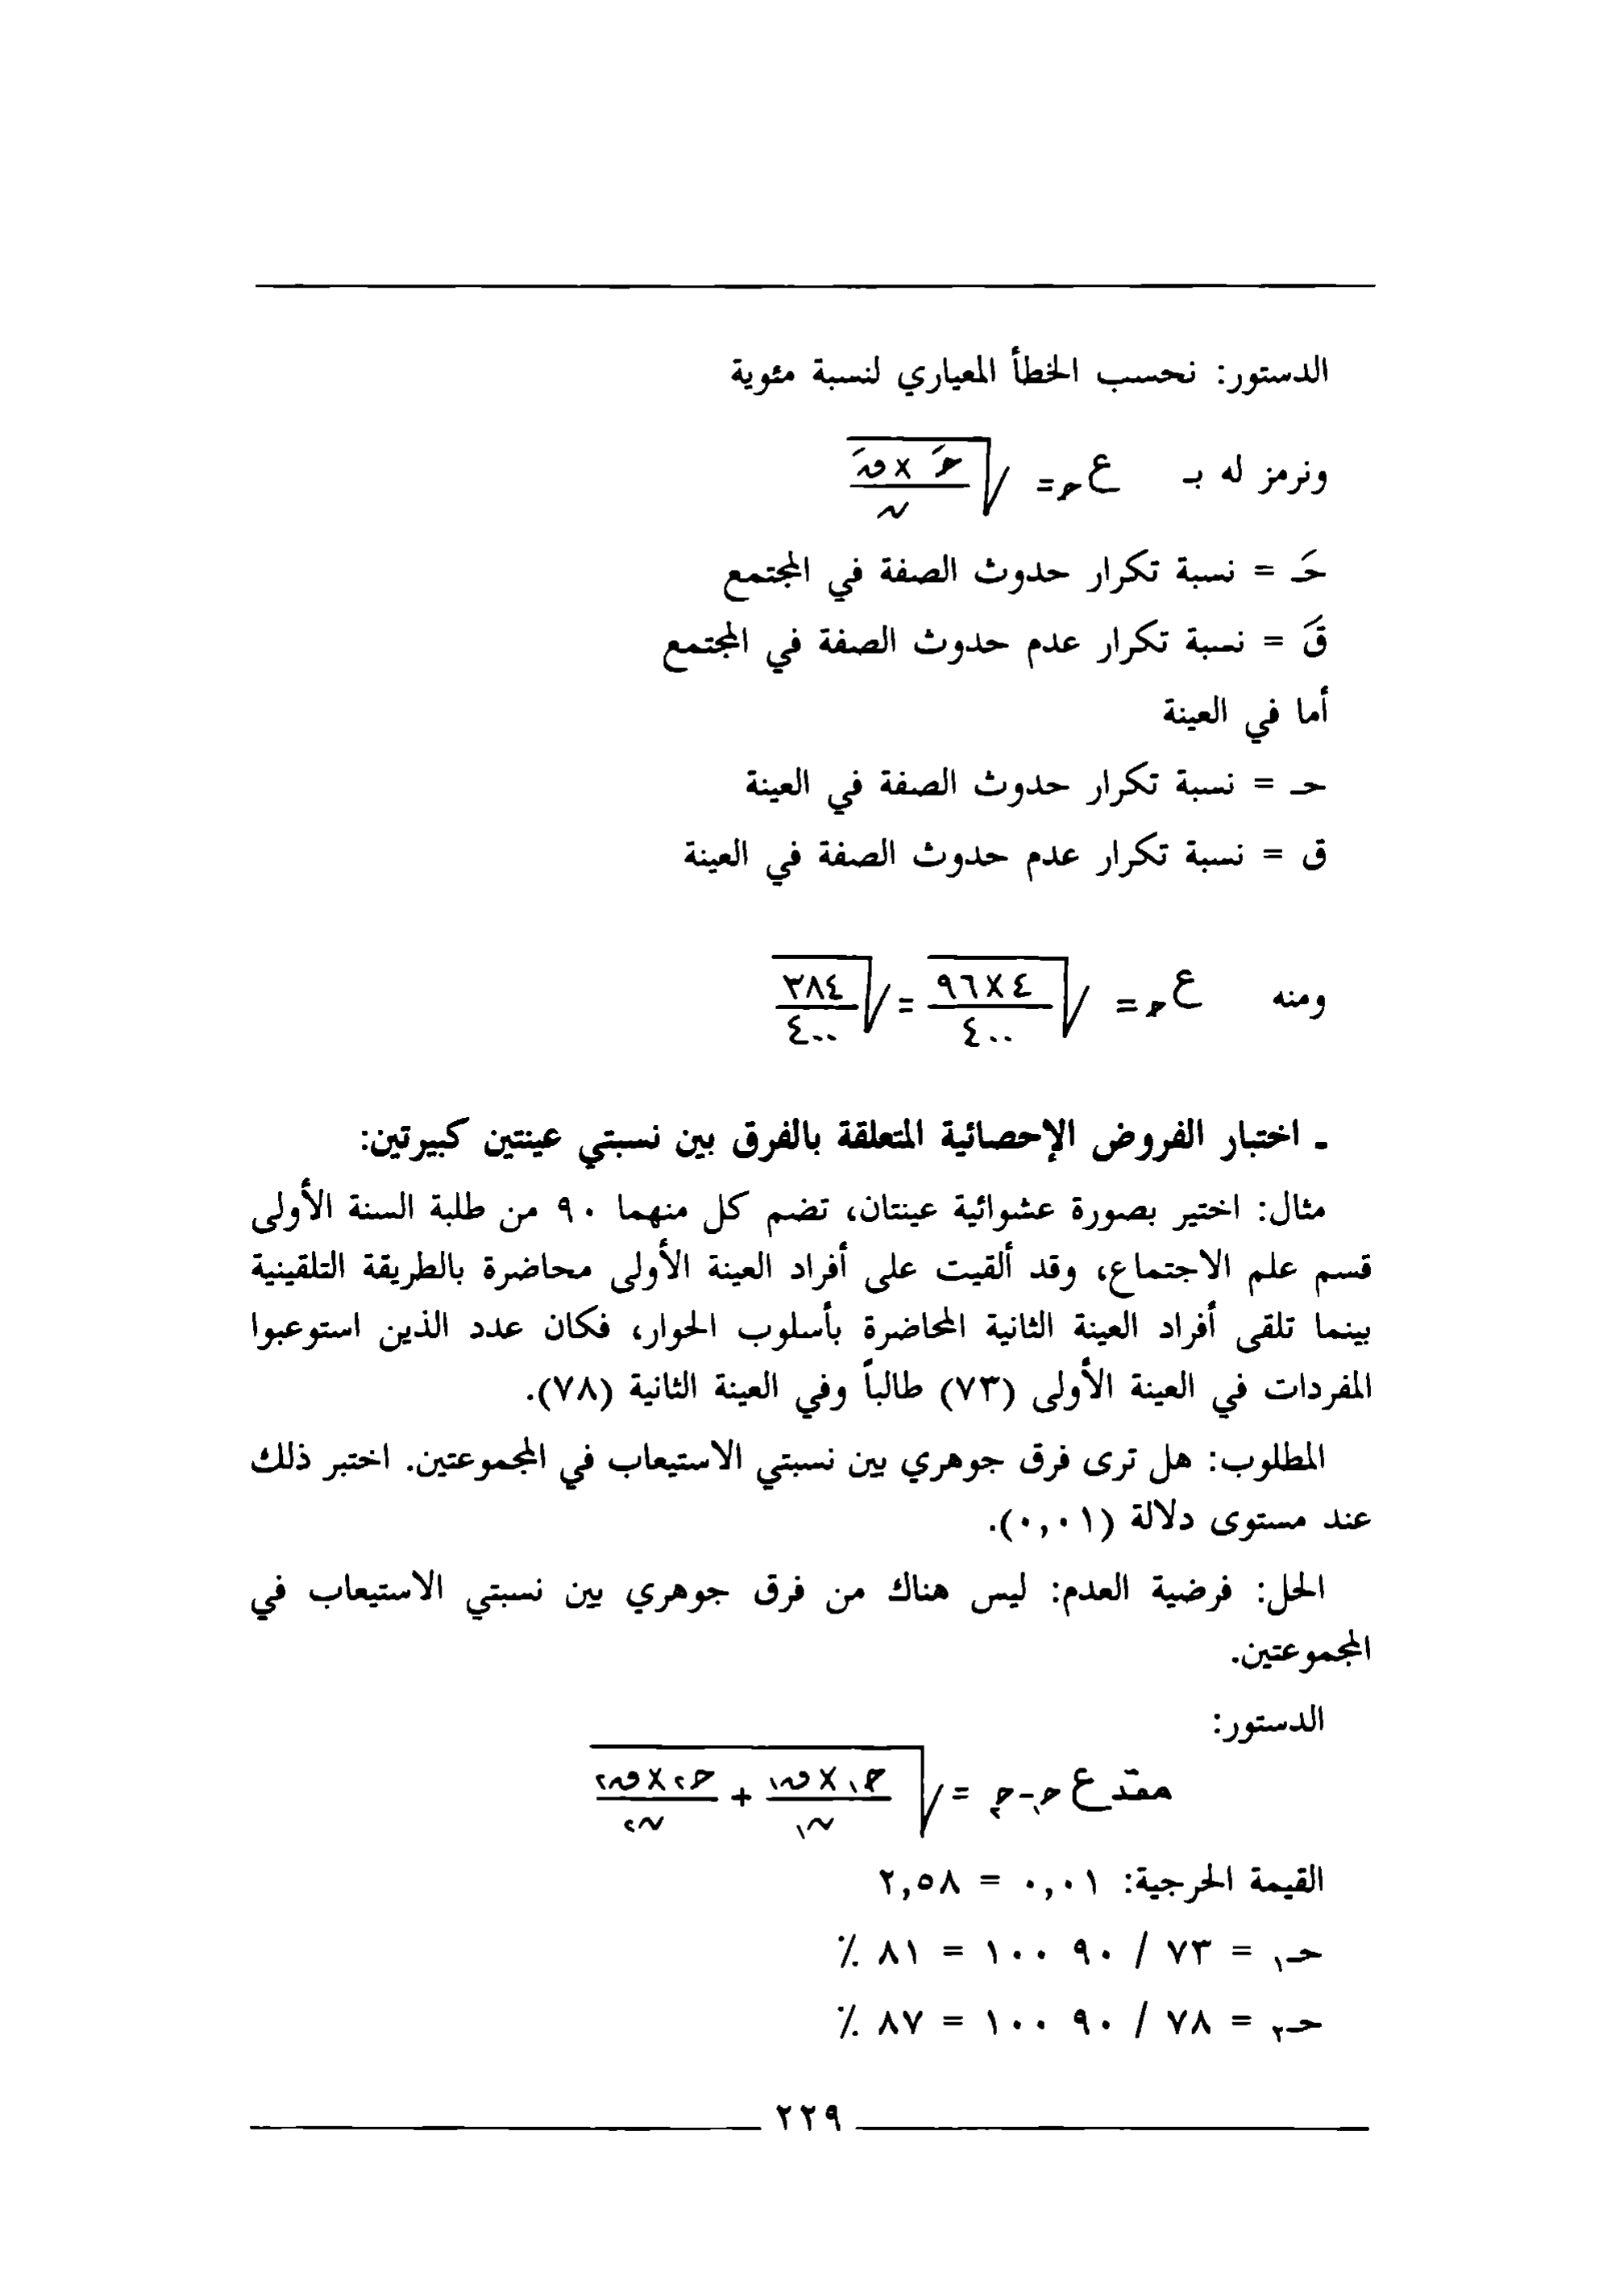 الدستور: نحسب الخطأ المعياري لنسبة مئوية
ونرمز له بـ ع حـ = √ حـَ × قَ / ن
حـَ = نسبة تكرار حدوث الصفة في المجتمع
قَ = نسبة تكرار عدم حدوث الصفة في المجتمع
أما في العينة
حـ = نسبة تكرار حدوث الصفة في العينة
ق = نسبة تكرار عدم حدوث الصفة في العينة
ومنه ع حـ = √ ٤×٩٦ / ٤٠٠ = √ ٣٨٤ / ٤٠٠
ـ اختبار الفروض الإحصائية المتعلقة بالفرق بين نسبتي عينتين كبيرتين:
مثال: اختير بصورة عشوائية عينتان، تضم كل منهما ٩٠ من طلبة السنة الأولى
قسم علم الاجتماع، وقد ألقيت على أفراد العينة الأولى محاضرة بالطريقة التلقينية
بينما تلقى أفراد العينة الثانية المحاضرة بأسلوب الحوار، فكان عدد الذين استوعبوا
المفردات في العينة الأولى (٧٣) طالباً وفي العينة الثانية (٧٨).
المطلوب: هل ترى فرق جوهري بين نسبتي الاستيعاب في المجموعتين. اختبر ذلك
عند مستوى دلالة (٠,٠١).
الحل: فرضية العدم: ليس هناك من فرق جوهري بين نسبتي الاستيعاب في
المجموعتين.
الدستور:
مقدع حـ١-حـ٢ = √ حـ١×ق١ / ن١ + حـ٢×ق٢ / ن٢
القيمة الحرجية: ٠,٠١ = ٢,٥٨
حـ١ = ٧٣ / ٩٠ ١٠٠ = ٨١ ٪
حـ٢ = ٧٨ / ٩٠ ١٠٠ = ٨٧ ٪
٢٢٩